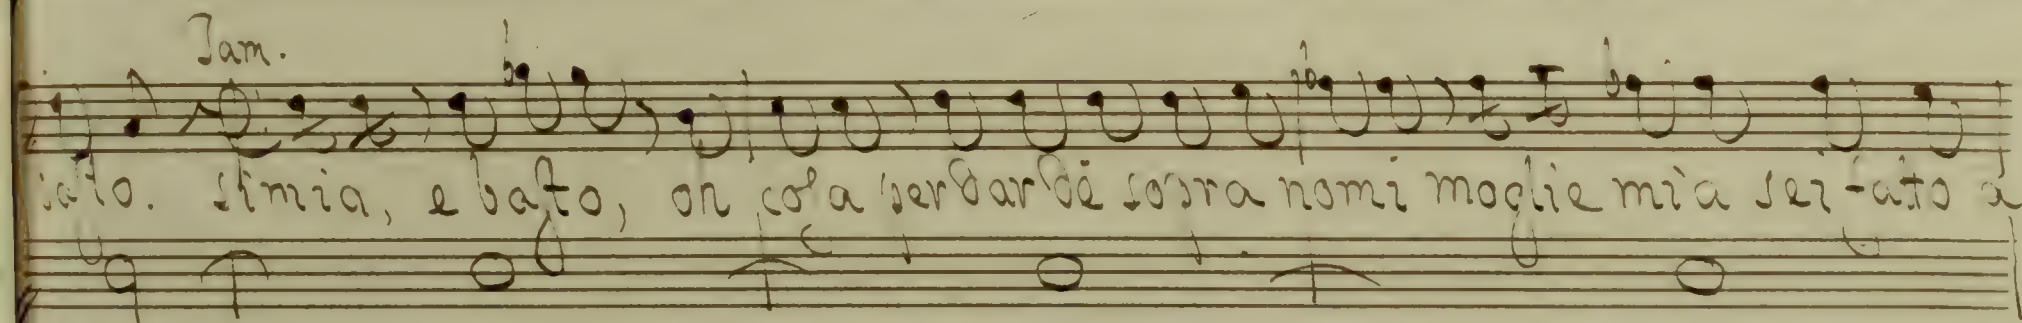 Tam.
iato. simia, e basto, on cola per dar de sopra nomi moglie mia sei fato a